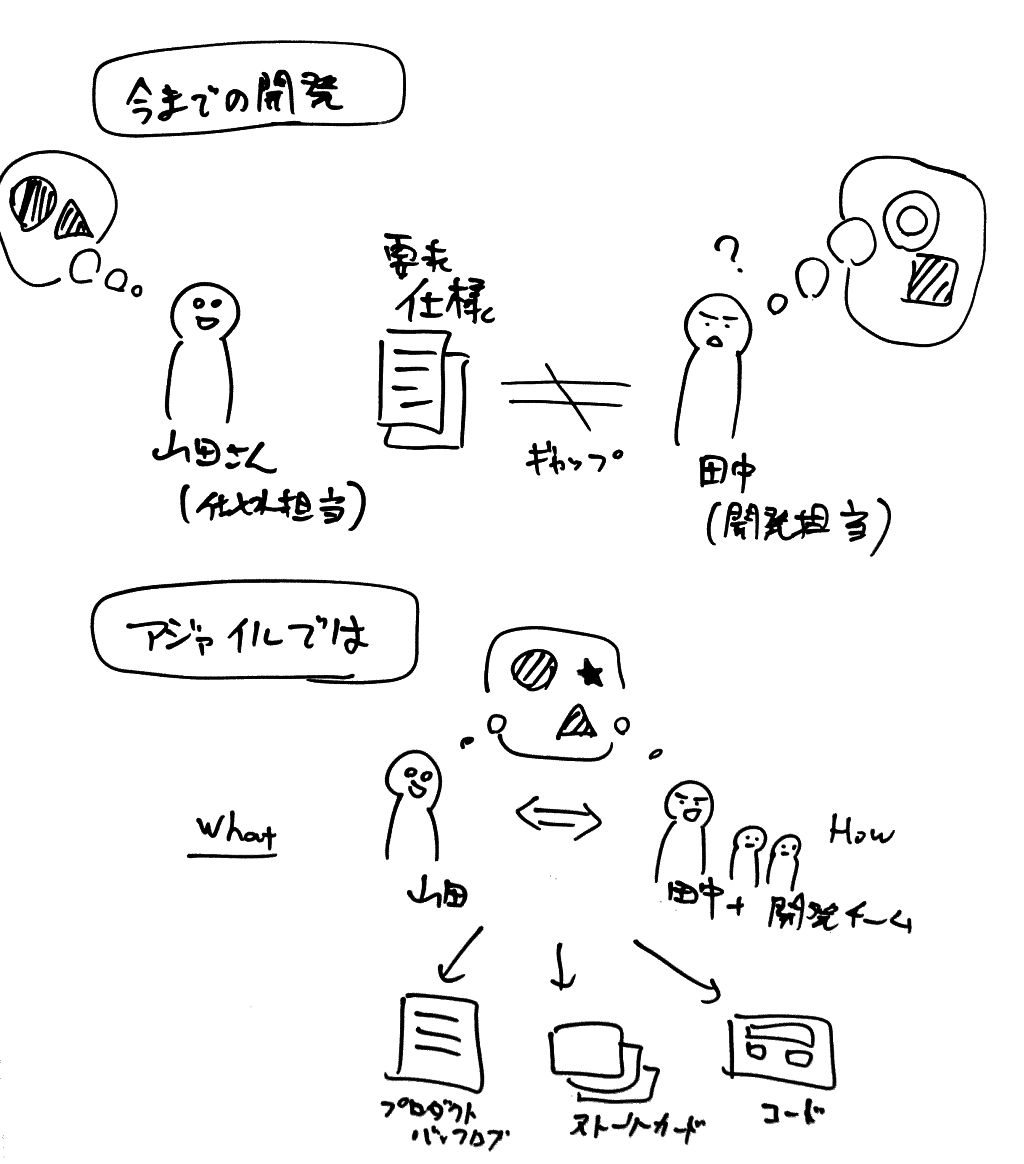 今までの開発
?
要求
仕様
山田さん
(仕様担当)
ギャップ
田中
(開発担当)
アジャイルでは
What
How
山田
田中+開発チーム
プロダクト
バックログ
ストーリーカード
コード